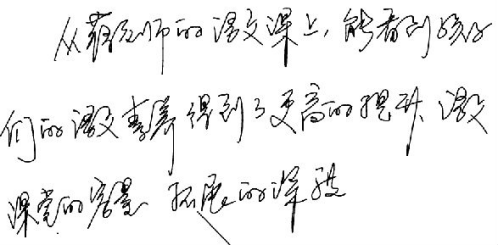 从蔡老师的语文课上,能看到孩子
们的语文素养得到了更高的提升,语文
课堂的容量 拓展的深